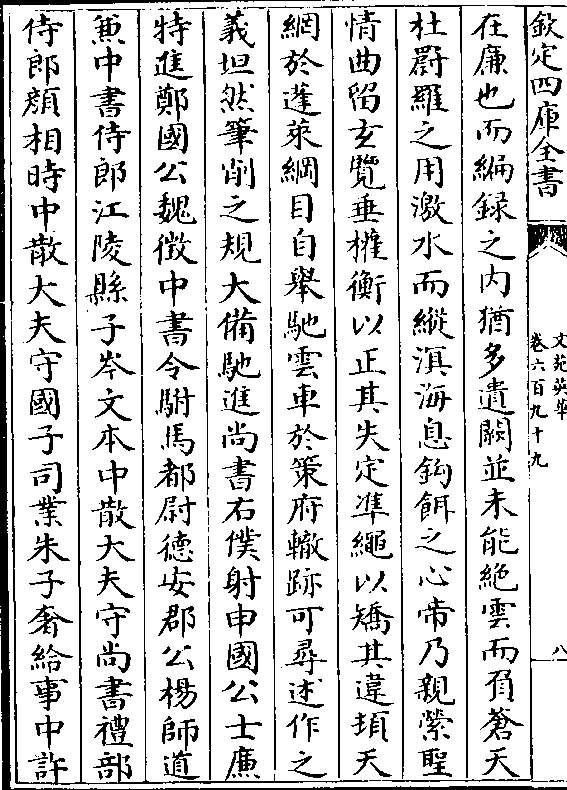 欽定四庫全書
文苑英華
卷六百九十九
八
在廉也而編録之内猶多遺闕並未能絶雲而負蒼天
杜罻羅之用激水而縱溟海息鈎餌之心帝乃親縈聖
情曲留玄覽垂權衡以正其失定準繩以矯其違頓天
網於蓬萊綱目自舉馳雲車於策府轍跡可尋述作之
義坦然筆削之規大備馳進尚書右僕射申國公士廉
特進鄭國公魏徵中書令駙馬都尉德安郡公楊師道
兼中書侍郎江陵縣子岑文本中散大夫守尚書禮部
侍郎顔相時中散大夫守國子司業朱子奢給事中許